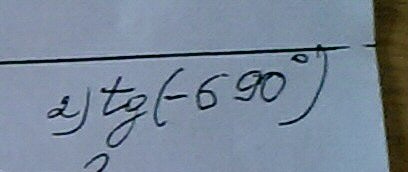 2) tg(-690°)